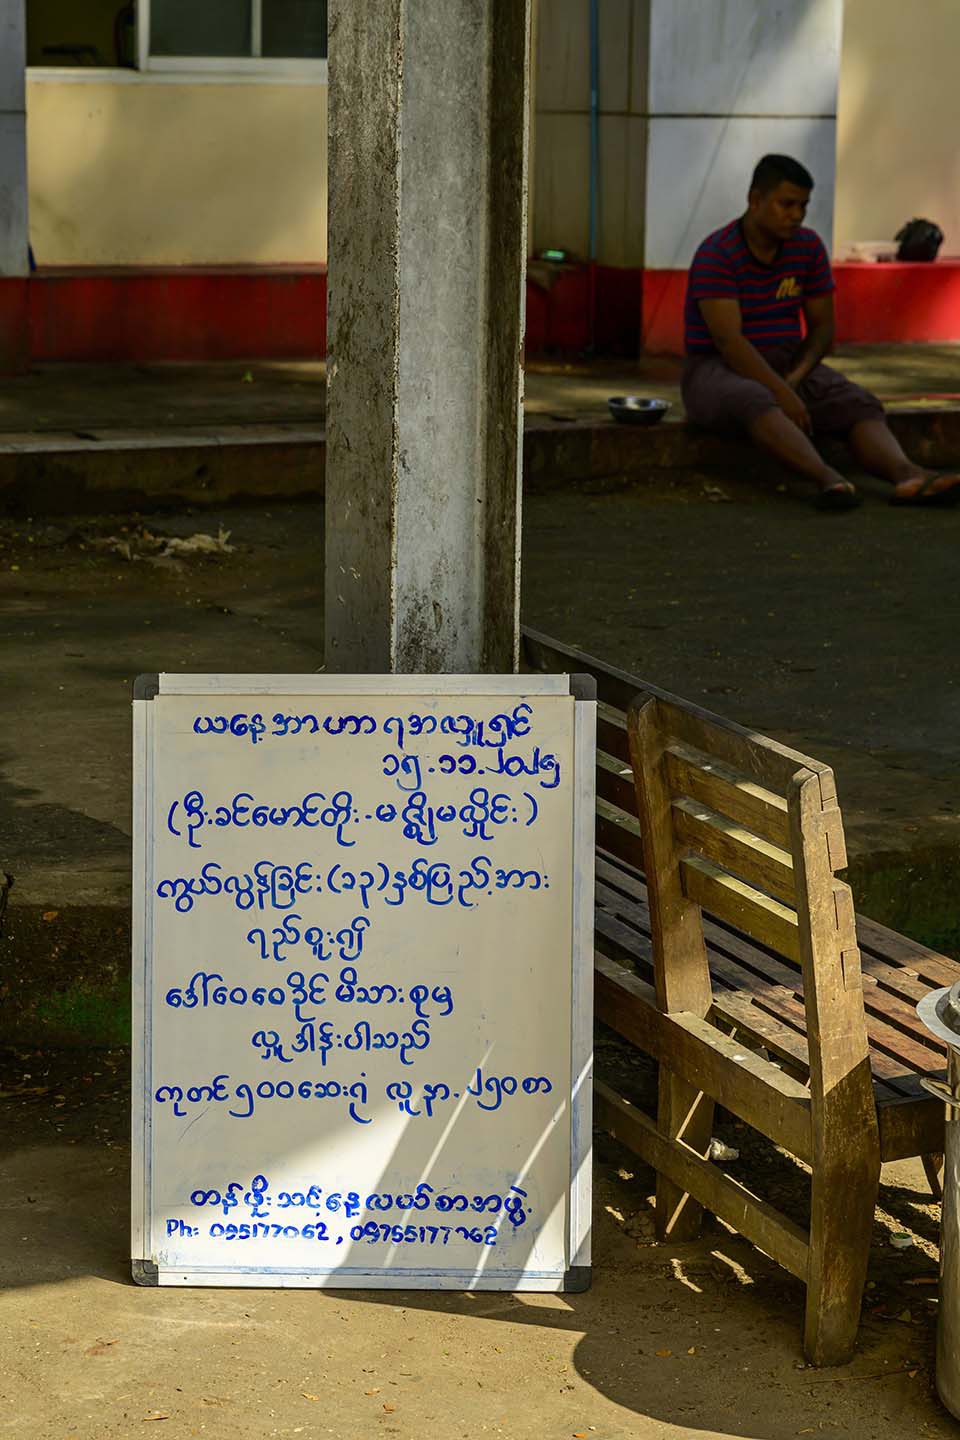 ယနေ့အာဟာရအလှူရှင်
၁၅.၁၁.၂၀၂၅
(ဦးခင်မောင်တိုး-မဇ္ဈိုမလှိုင်း)
ကွယ်လွန်ခြင်း(၁၃)နှစ်ပြည့်အား
ရည်စူး၍
ဒေါ်ဝေဝေခိုင်မိသားစုမှ
လှူဒါန်းပါသည်
ကုတင်၅၀၀ဆေးရုံ လူနာ.၂၅၀စာ
တန်ဖိုးသင့်နေ့လယ်စာအဖွဲ့.
Ph: 095177062, 09755177062